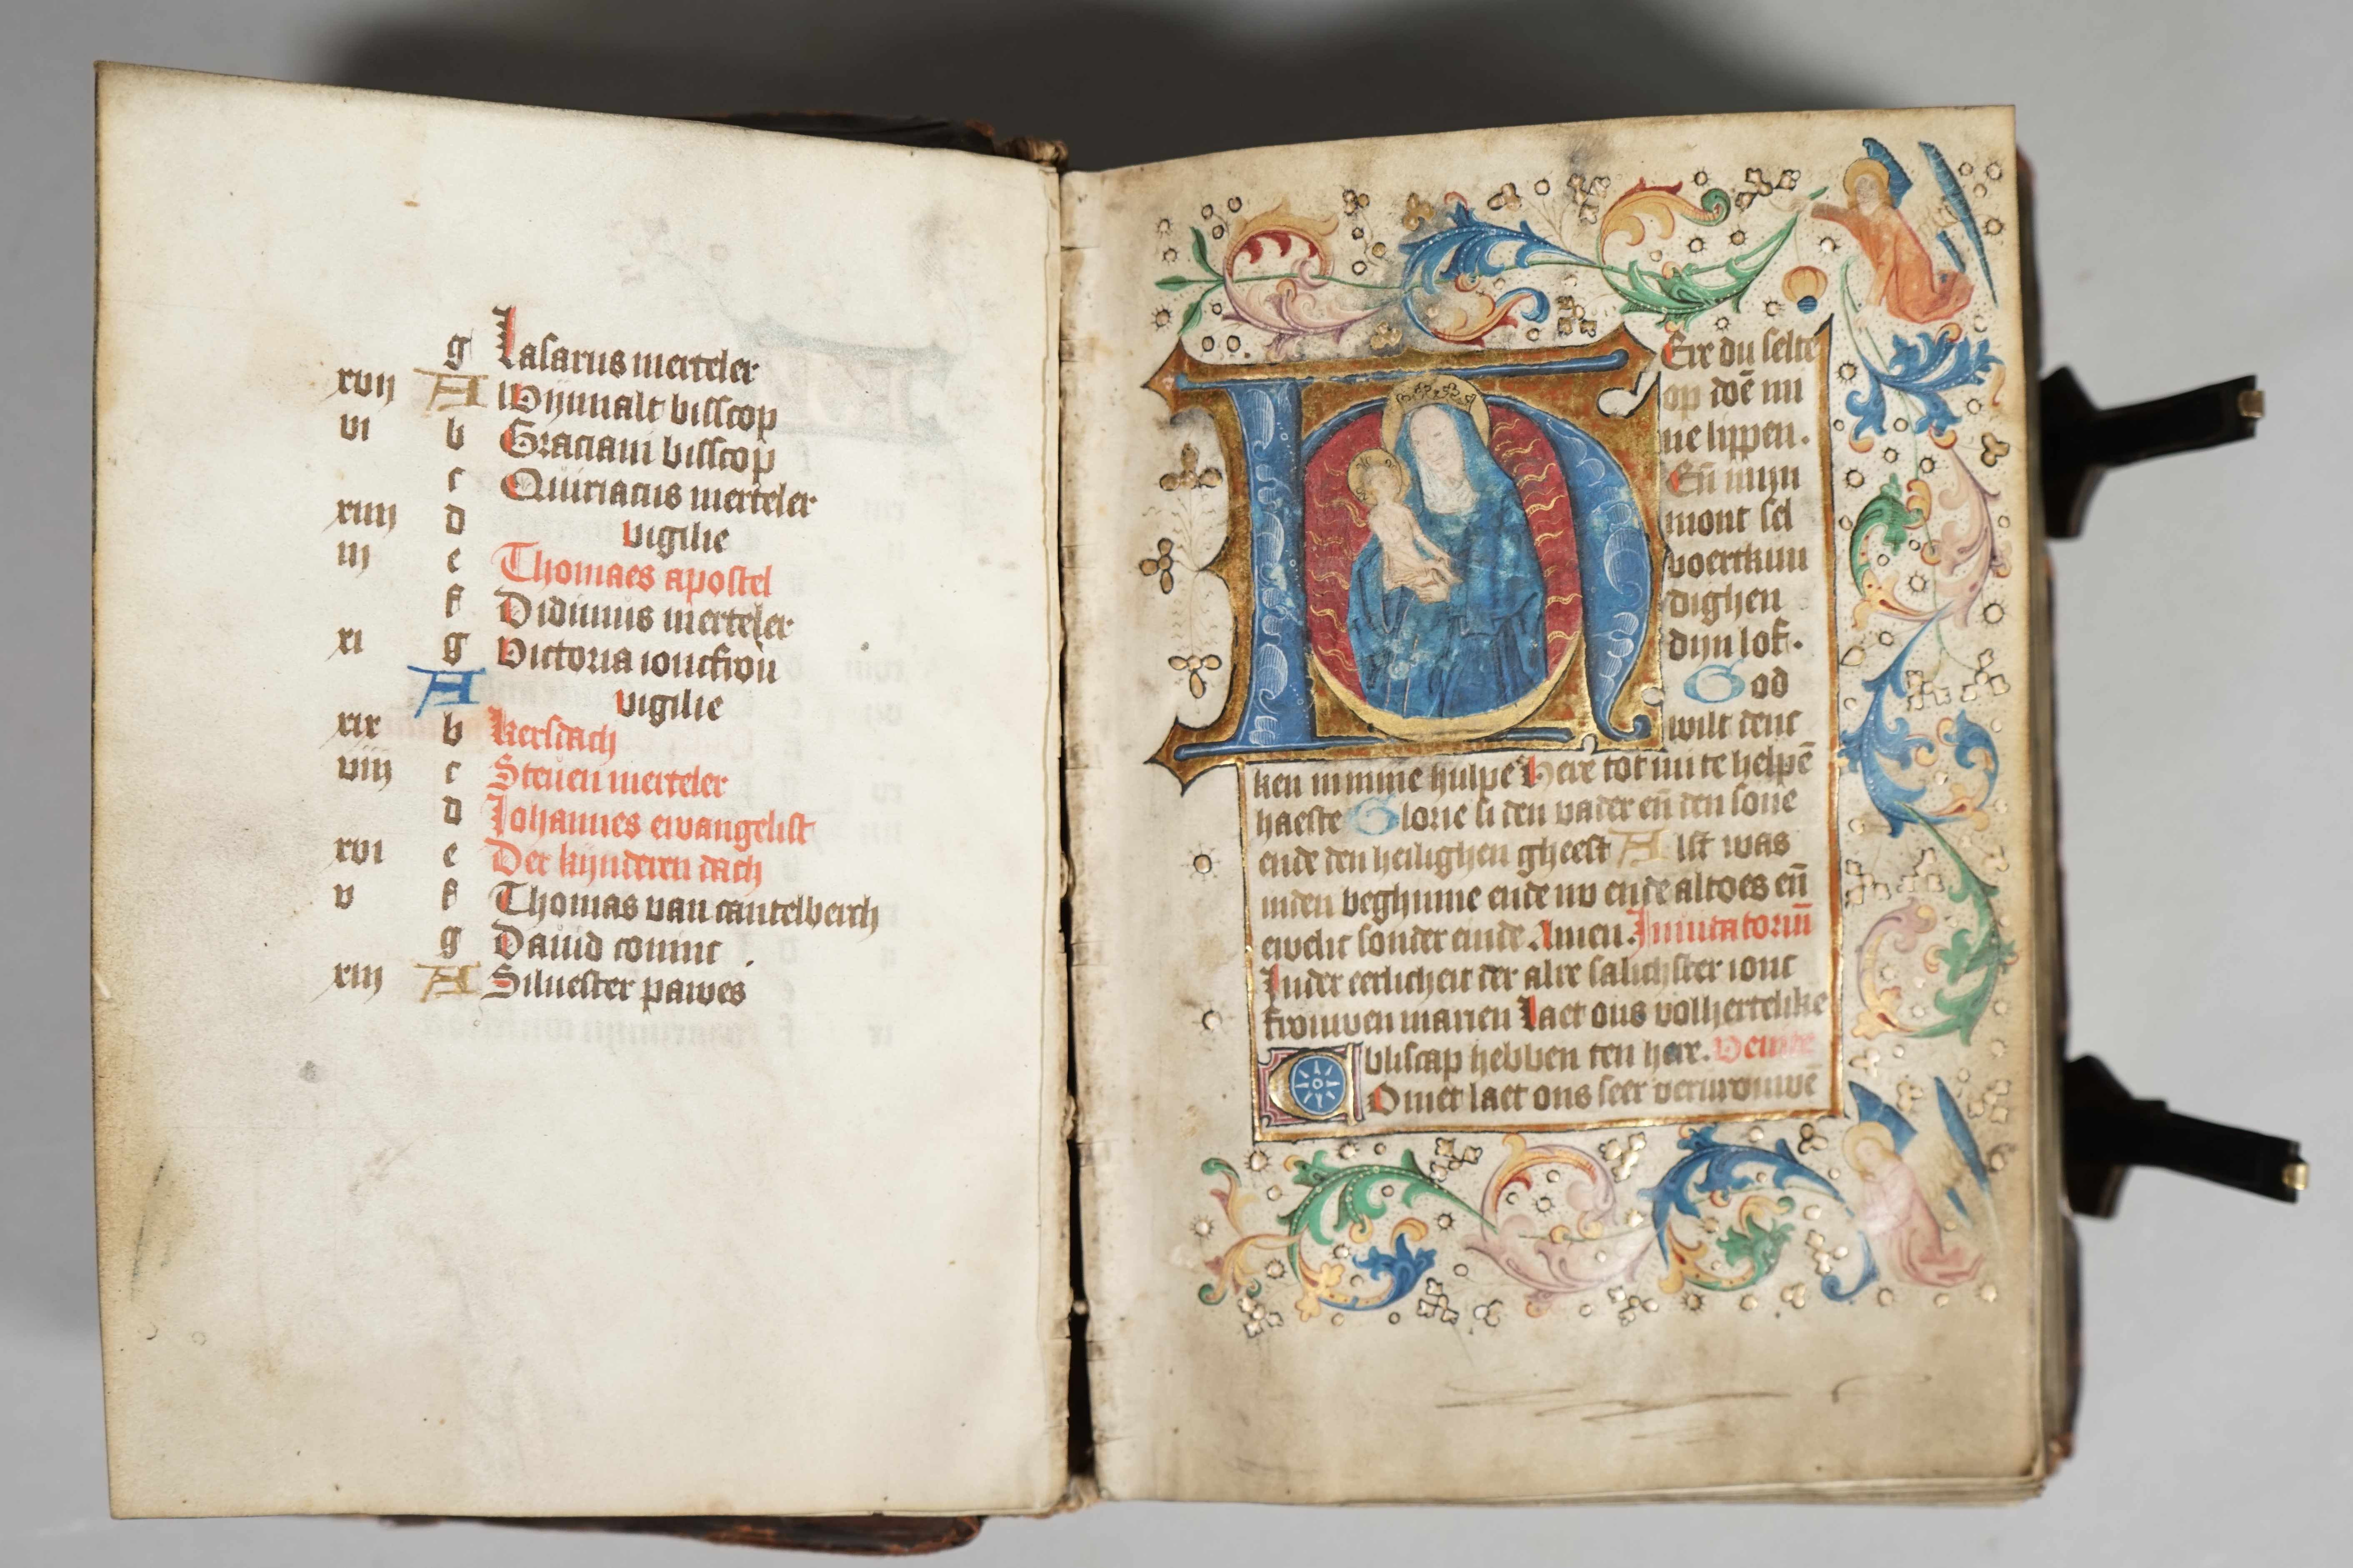 g Lasarus merteler
xvij A Wijnnalt bisscop
vi b Graciani bisscop
c Quiriacus merteler
xiiij d vigilie
iij e Thomaes apostel
f Didimus merteler
xi g Victoria ioncfrou
A vigilie
xix b Kersdach
viij c Steuen merteler
d Johannes ewangelist
xvi e Der kijnderen dach
v f Thomas van cantelberch
g Dauid coninc
xiij A Siluester pawes
HEre du selte
op doē mi
ne lippen.
Eñ mijn
mont sel
voertkun
dighen
dijn lof.
God
wilt denc
ken in mine hulpe Here tot mi te helpē
haeste Glorie si den vader eñ den sone
ende den heilighen gheest Alst was
inden beghinne ende nv ende altoes eñ
ewelic sonder einde. Amen. Inuitatoriū
Inder eerlicheit der alre salichster ionc
frouwen marien Laet ons volhertelike
bliscap hebben ten here. Venite
Comet laet ons seer vervrouwē